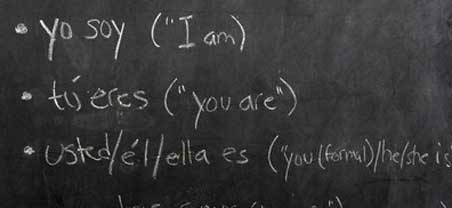 • yo soy ("I am)
• tú eres ("you are")
• usted/él/ella es ("you (formal)/he/she is